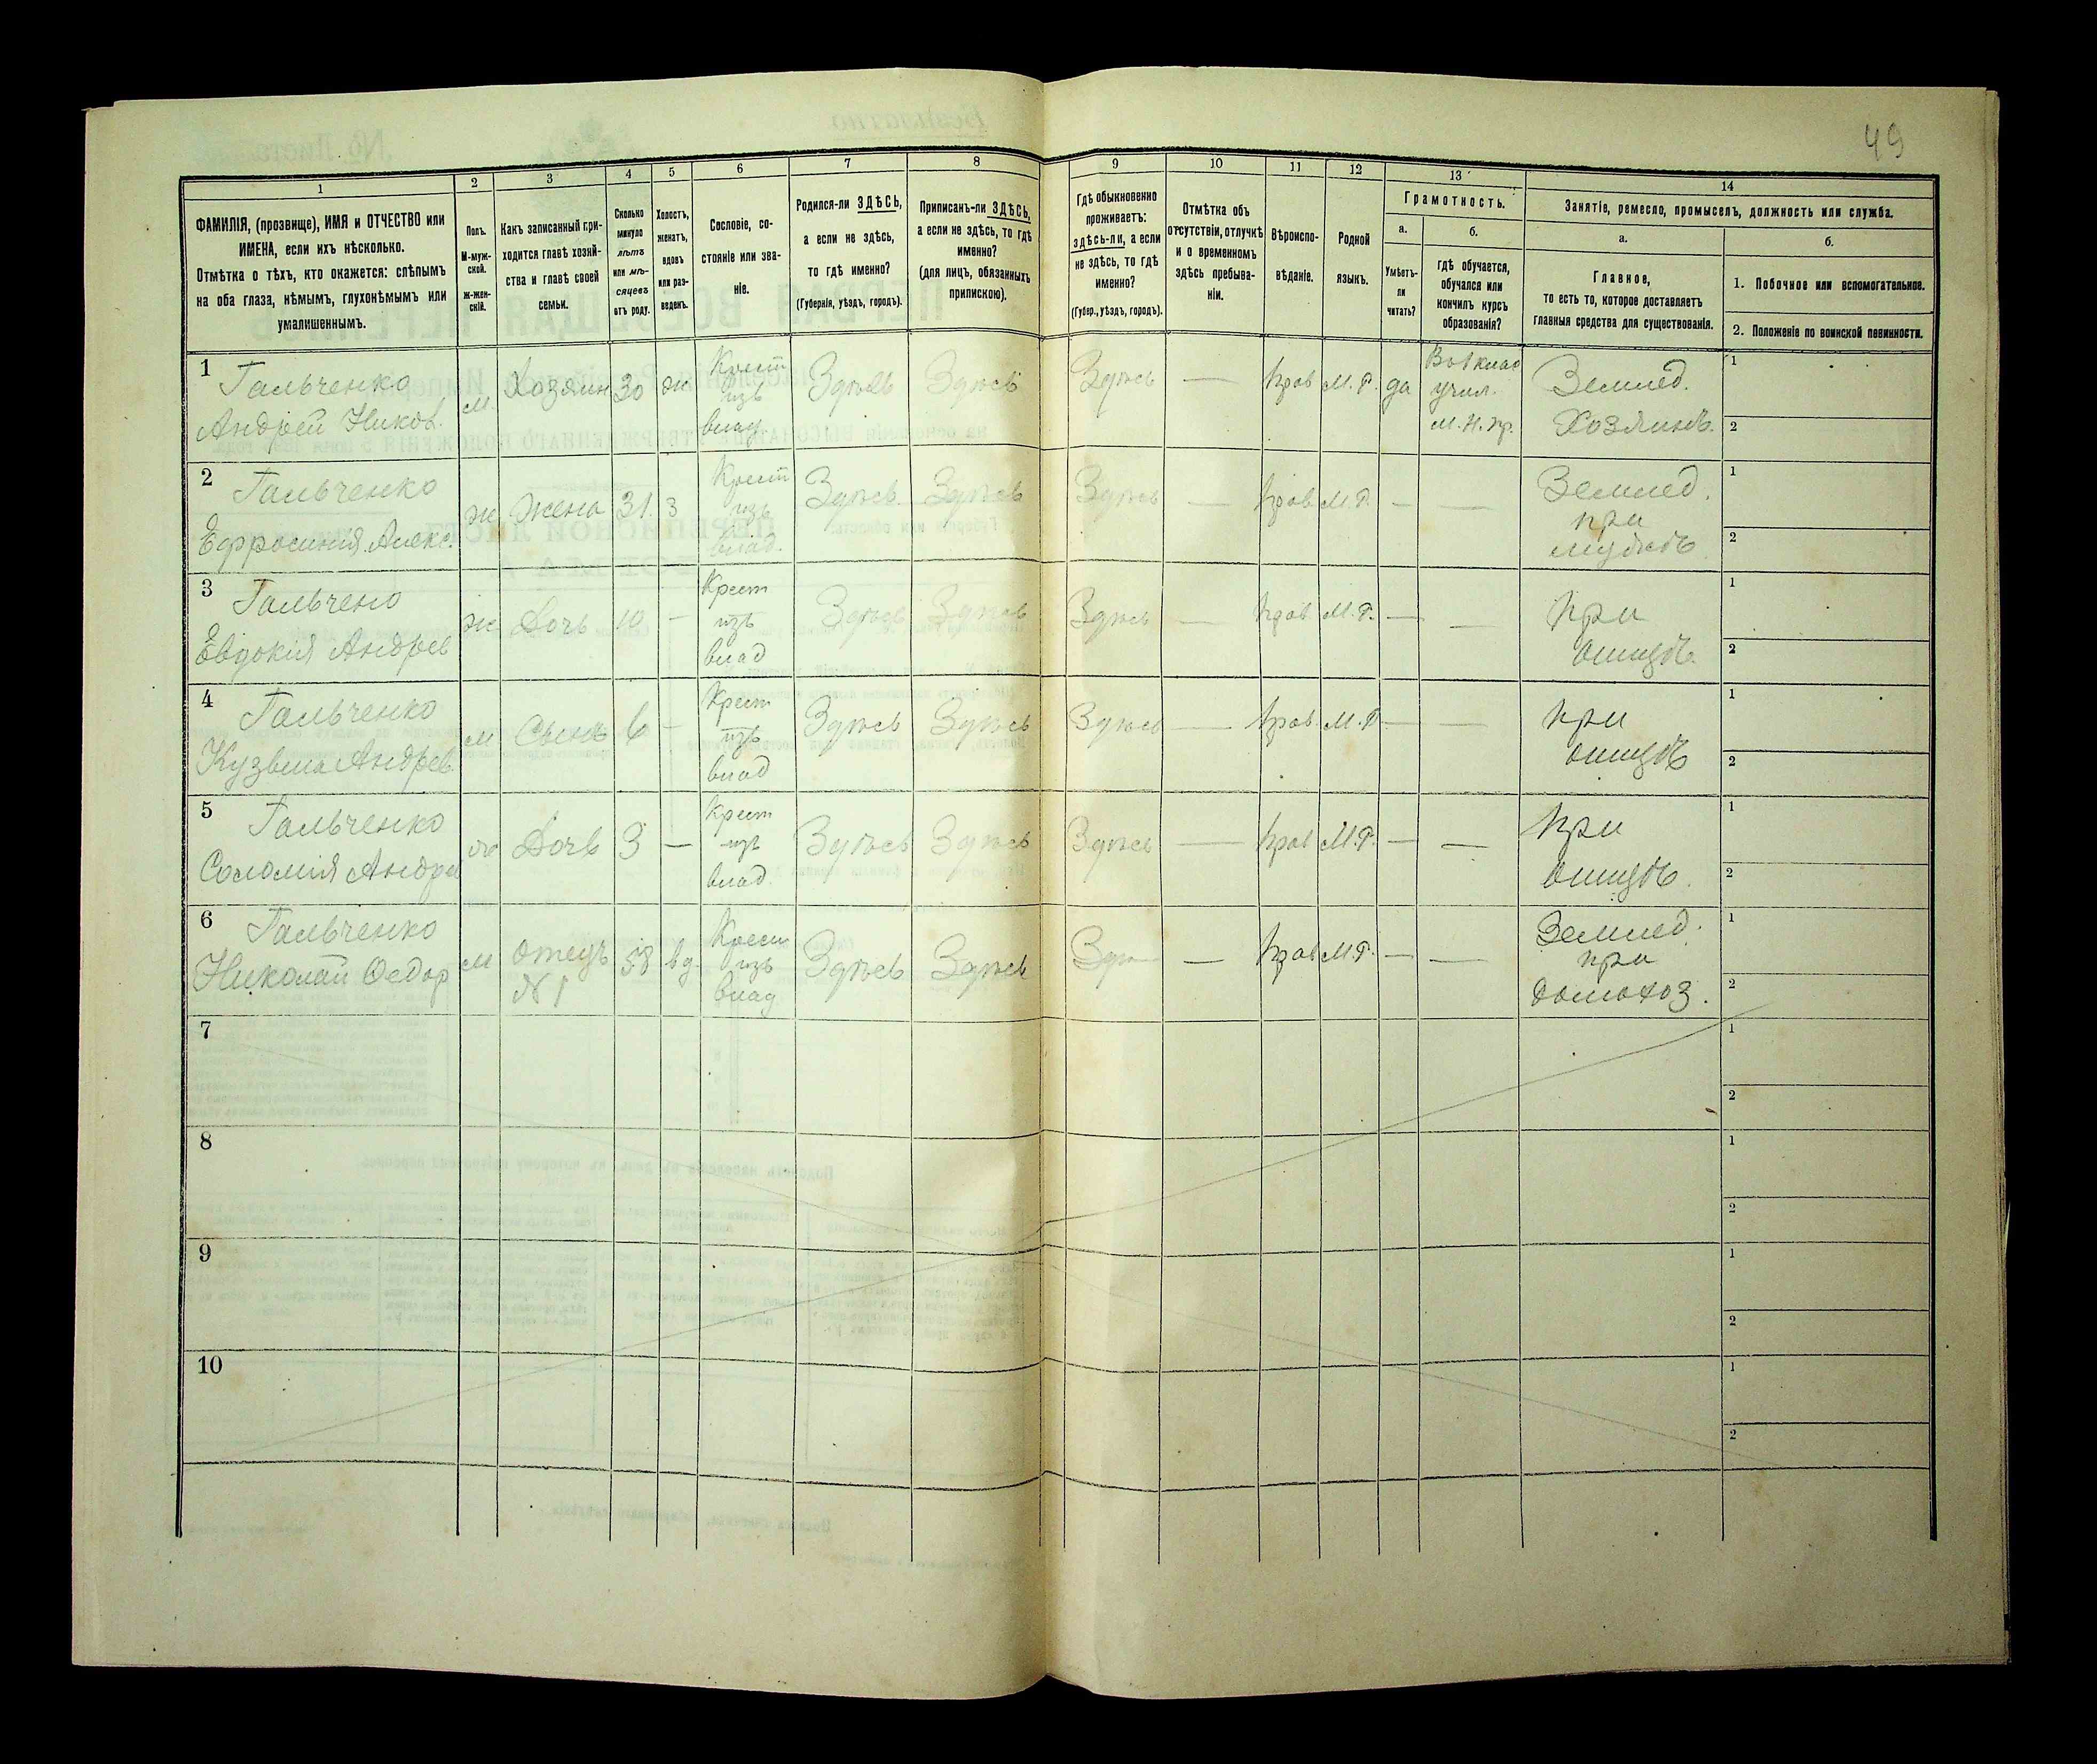 49
1
2
3
4
5
6
7
8
9
10
11
12
13
14
ФАМИЛІЯ, (прозвище), ИМЯ и ОТЧЕСТВО или
ИМЕНА, если ихъ нѣсколько.
Отмѣтка о тѣхъ, кто окажется: слѣпымъ
на оба глаза, нѣмымъ, глухонѣмымъ или
умалишеннымъ.
Полъ.
М-муж-
ской.
Ж-жен-
скій.
Какъ записанный при-
ходится главѣ хозяй-
ства и главѣ своей
семьи.
Сколько
минуло
лѣтъ
или мѣ-
сяцевъ
отъ роду.
Холостъ,
женатъ,
вдовъ
или раз-
веденъ.
Сословіе, со-
стояніе или зва-
ніе.
Родился-ли ЗДѢСЬ,
а если не здѣсь,
то гдѣ именно?
(Губернія, уѣздъ, городъ).
Приписанъ-ли ЗДѢСЬ,
а если не здѣсь, то гдѣ
именно?
(для лицъ, обязанныхъ
припискою).
Гдѣ обыкновенно
проживаетъ:
здѣсь-ли, а если
не здѣсь, то гдѣ
именно?
(Губер., уѣздъ, городъ).
Отмѣтка объ
отсутствіи, отлучкѣ
и о временномъ
здѣсь пребыва-
ніи.
Вѣроиспо-
вѣданіе.
Родной
языкъ.
Грамотность.
а.
Умѣетъ-
ли
читать?
б.
гдѣ обучается,
обучался или
кончилъ курсъ
образованія?
Занятіе, ремесло, промыселъ, должность или служба.
а.
Главное,
то есть то, которое доставляетъ
главныя средства для существованія.
б.
1. Побочное или вспомогательное.
2. Положеніе по воинской повинности.
1
Гальченко
Андрей Никол.
м.
Хозяин
30
ж
Крест
изъ
влад.
Здѣсь
Здѣсь
Здѣсь
—
Прав
М. Р.
да
Въ 1 клас
учил.
м. н. пр.
Землед.
Хозяинъ.
1
2
2
Гальченко
Ефросинія Алекс.
ж
Жена
31.
з
Крест
изъ
влад.
Здѣсь
Здѣсь
Здѣсь
—
Прав
М. Р.
—
—
Землед.
при
мужѣ
1
2
3
Гальчено
Евдокія Андрев
ж
Дочь
10
—
Крест
изъ
влад
Здѣсь
Здѣсь
Здѣсь
—
Прав
М. Р.
—
—
при
отцѣ.
1
2
4
Гальченко
Кузьма Андрев.
м
Сынъ
6
—
Крест
изъ
влад
Здѣсь
Здѣсь
Здѣсь
—
Прав.
М. Р
—
—
при
отцѣ
1
2
5
Гальченко
Соломія Андре
ж
Дочь
3
—
Крест
изъ
влад.
Здѣсь
Здѣсь
Здѣсь
—
Прав
М. Р.
—
—
при
отцѣ.
1
2
6
Гальченко
Николай Федор
м
отецъ
№ 1
58
вд.
Крест
изъ
влад
Здѣсь
Здѣсь
—
Прав
М. Р.
—
—
Землед.
при
домохоз.
1
2
7
1
2
8
1
2
9
1
2
10
1
2